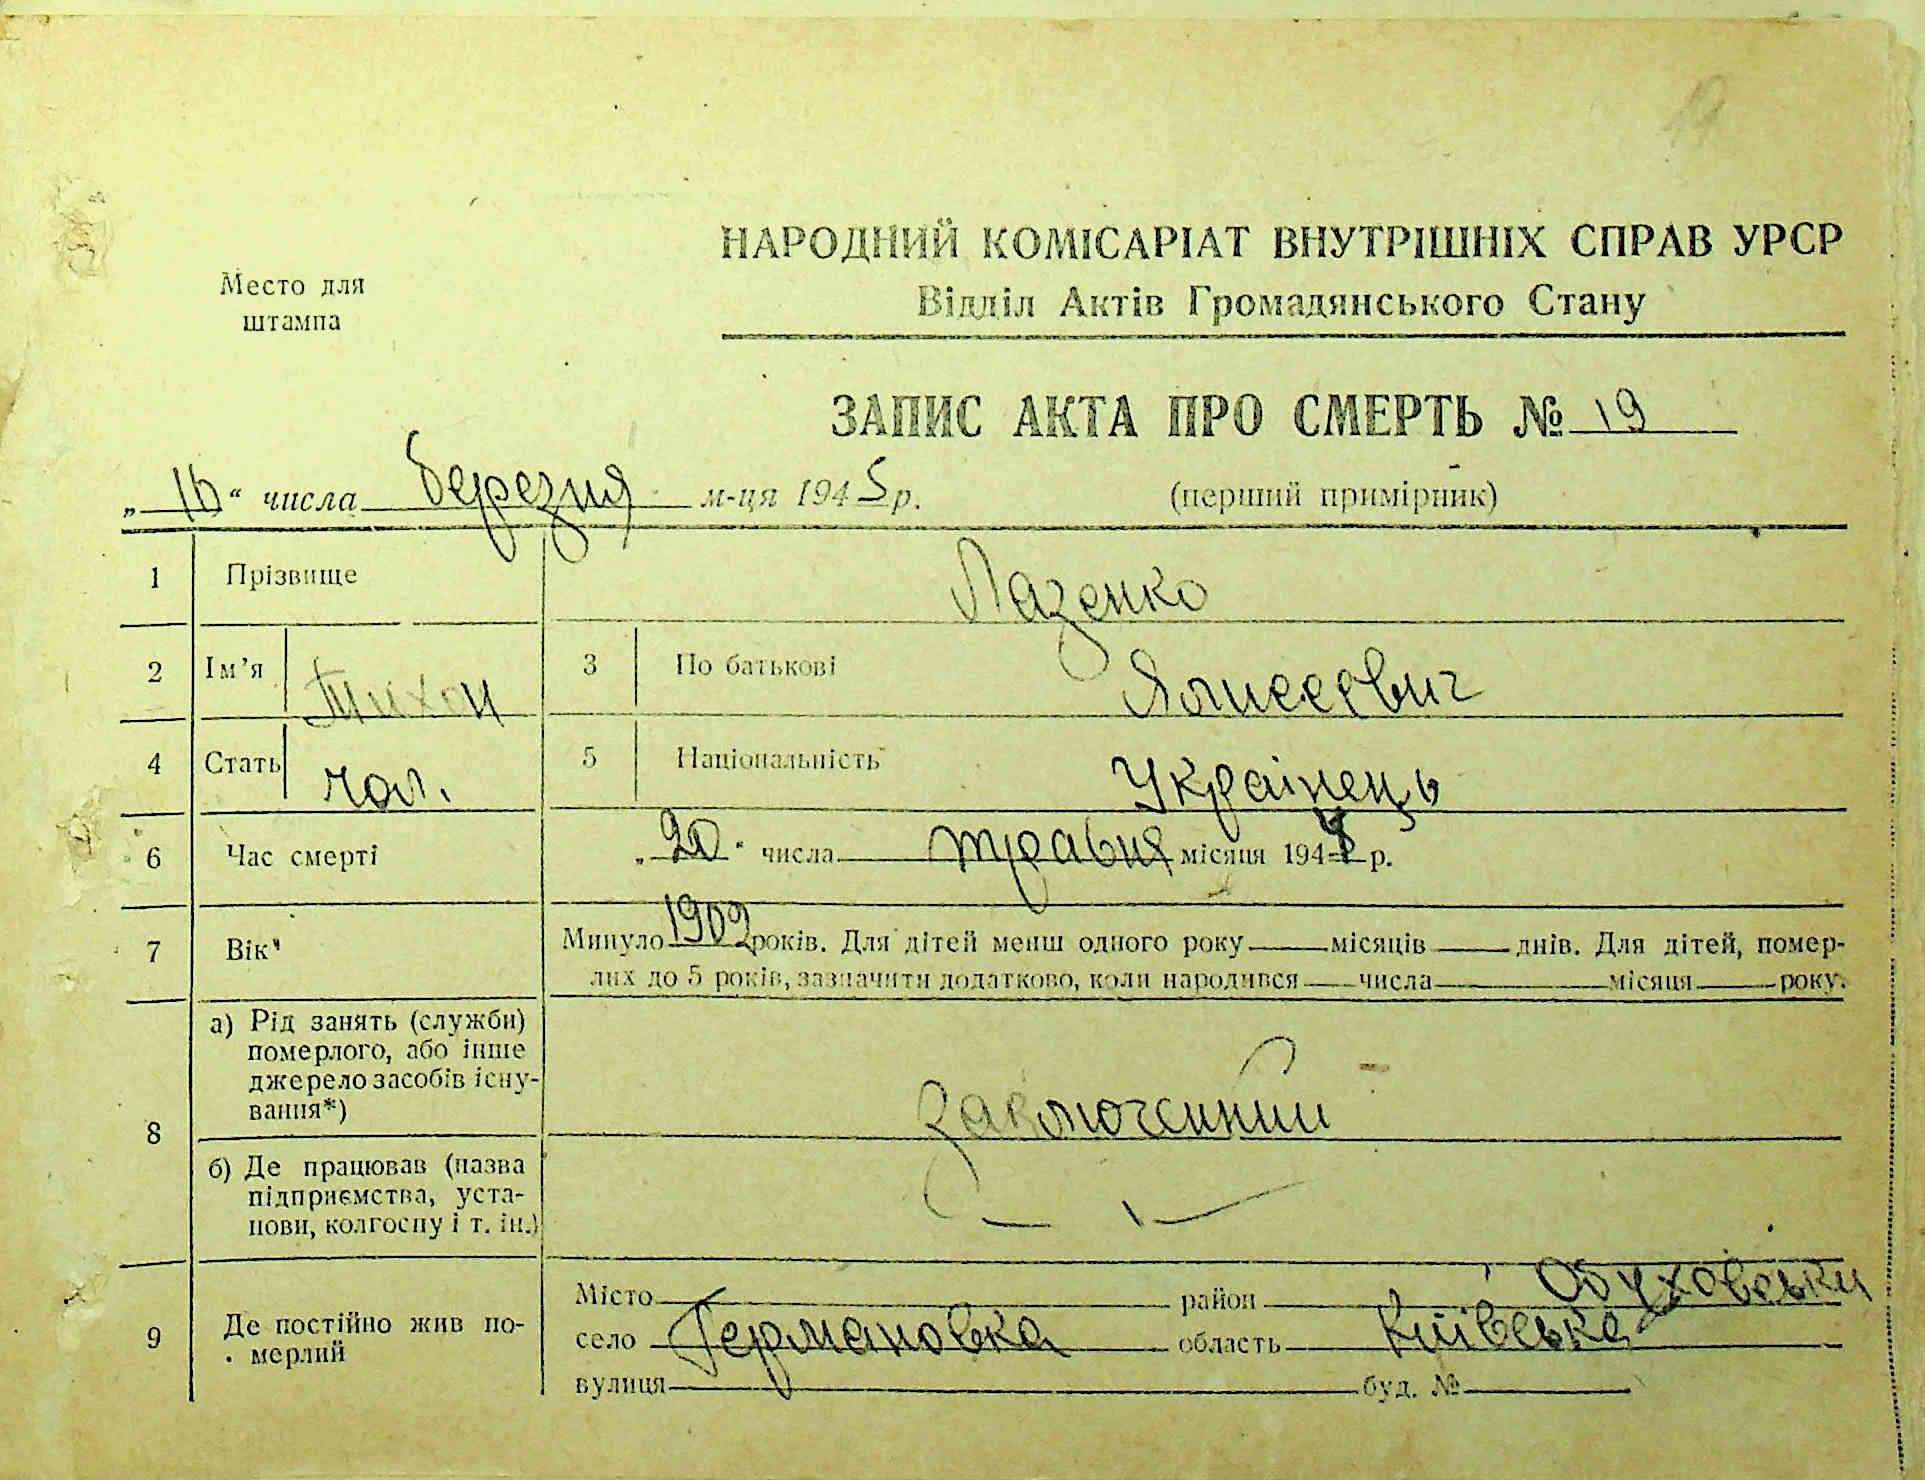 19
НАРОДНИЙ КОМІСАРІАТ ВНУТРІШНІХ СПРАВ УРСР
Відділ Актів Громадянського Стану
Место для
штампа
ЗАПИС АКТА ПРО СМЕРТЬ № 19
„16“ числа березня м-ця 1945 р.
(перший примірник)
1 Прізвище Лазенко
2 Ім’я Тихон 3 По батькові
4 Стать чол. 5 Національність Українець
6 Час смерті „20“ числа травня місяця 1944 р.
7 Вік Минуло 1909 років. Для дітей менш одного року місяців днів. Для дітей, помер-
лих до 5 років, зазначити додатково, коли народився числа місяця року.
8 а) Рід занять (служби)
померлого, або інше
джерело засобів існу-
вання*)
заключенний
б) Де працював (назва
підприємства, уста-
нови, колгоспу і т. ін.)
9 Де постійно жив по-
мерлий
Місто район Обуховськи
село Германовка область Київська
вулиця буд. №